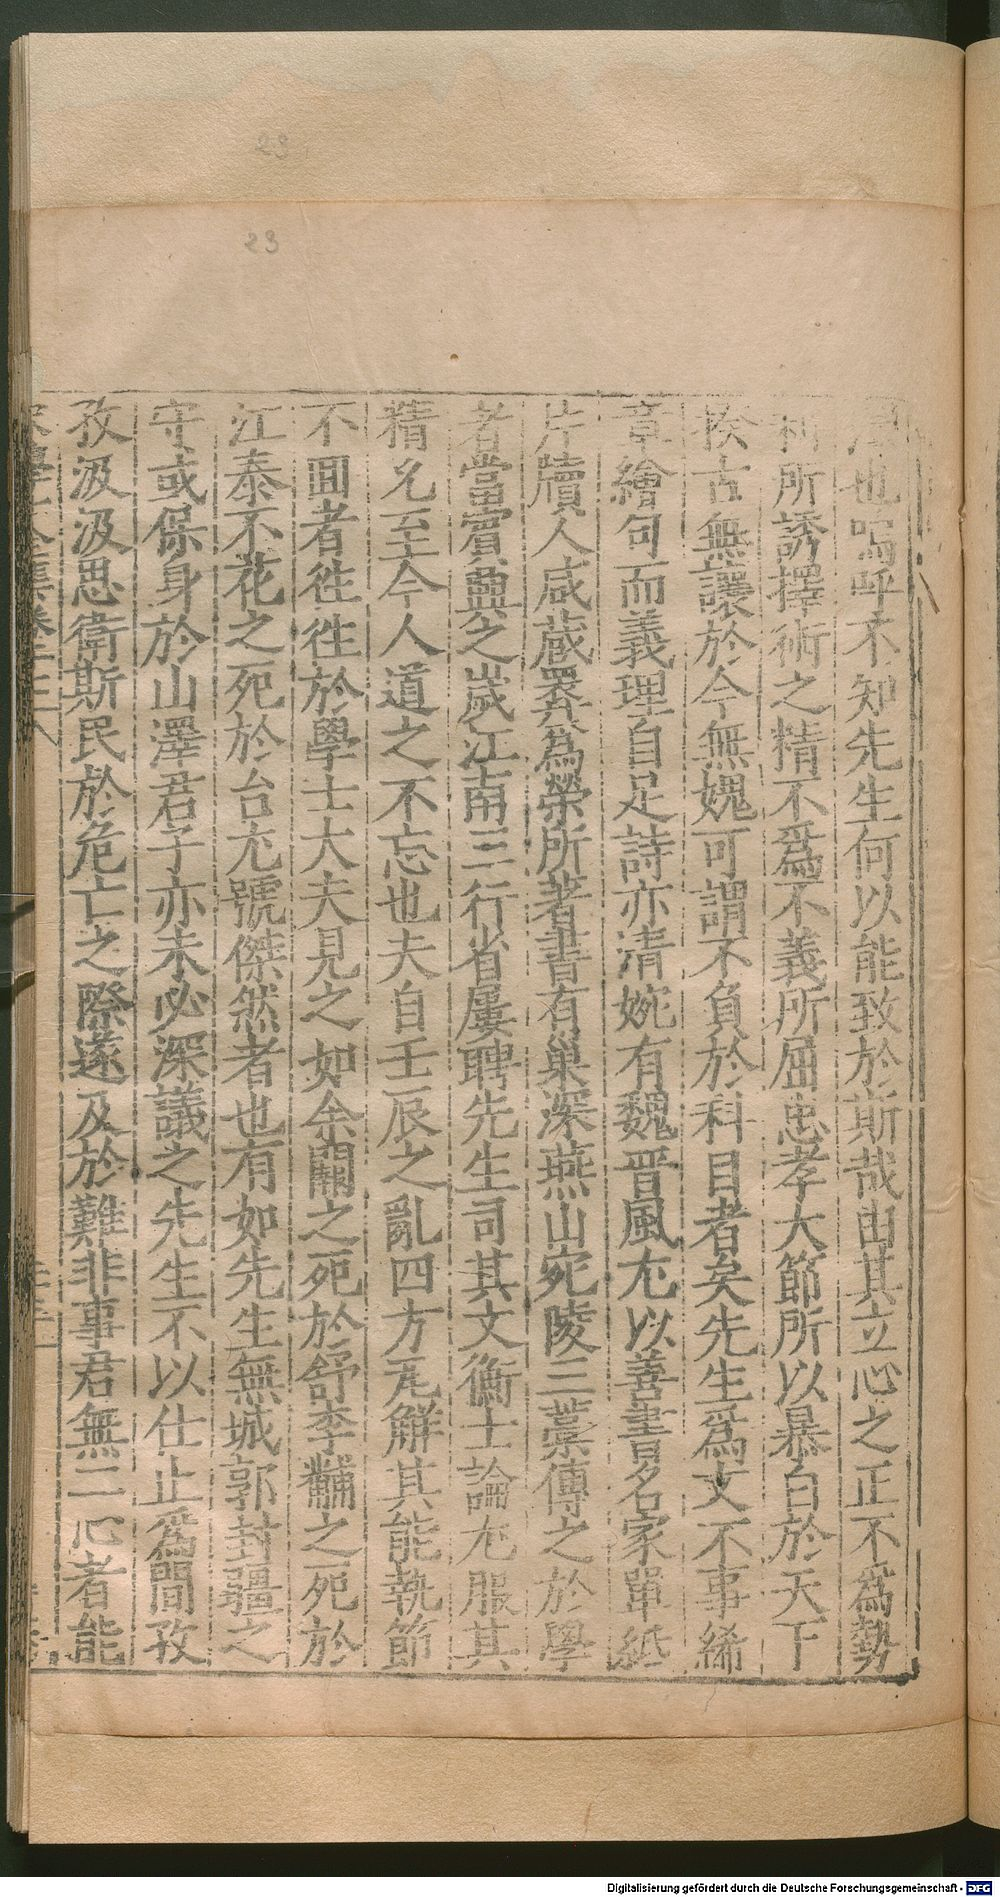 23
23
也嗚呼不知先生何以能致於斯哉由其立心之正不為勢
利所誘擇術之精不為不義所屈忠孝大節所以暴白於天下
揆古無讓於今無媿可謂不負於科目者矣先生為文不事絺
章繪句而義理自足詩亦清婉有魏晋風尤以善書名家單紙
片牘人咸蔵畏為榮所著書有巢深燕山宛陵三藁傳之於學
者當賓興之歲江南三行省屢聘先生司其文衡士論尤服其
精允至今人道之不忘也夫自壬辰之亂四方瓦解其能執節
不回者徃徃於學士大夫見之如余闕之死於舒李黼之死於
江泰不花之死於台尤號傑然者也有如先生無城郭封疆之
守或保身於山澤君子亦未必深議之先生不以仕止為間孜
孜汲汲思衛斯民於危亡之際遂及於難非事君無二心者能
宋學士全集卷二三八
Digitalisierung gefördert durch die Deutsche Forschungsgemeinschaft - DFG